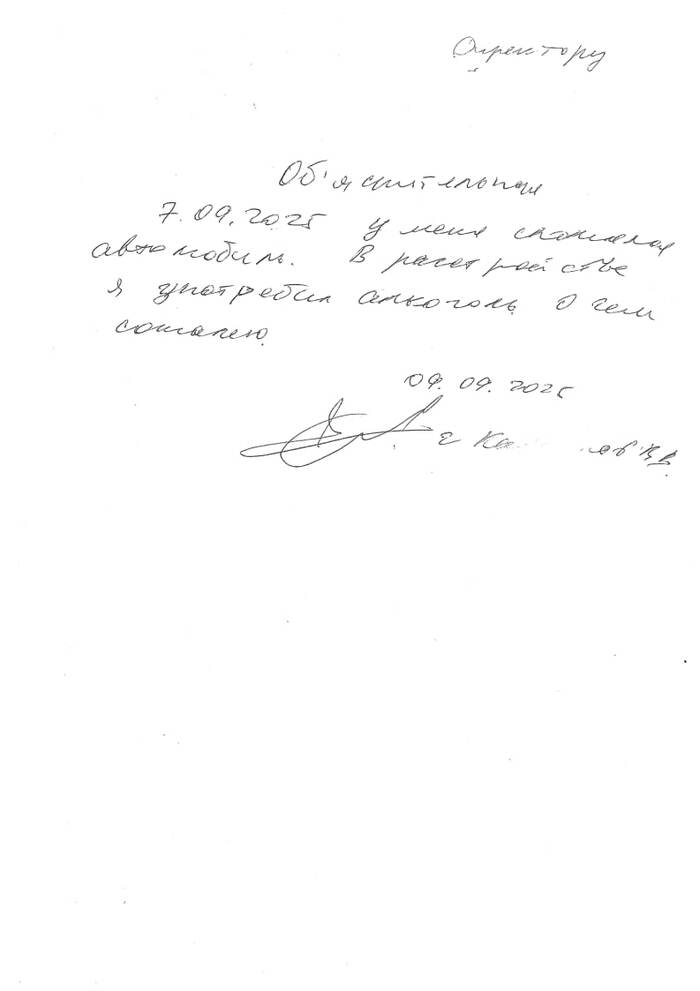 Директору
Об'яснительная
7.09.2025 у меня сломался
автомобиль. В расстройстве
я употребил алкоголь о чем
сожалею.
09.09.2025
В.В.